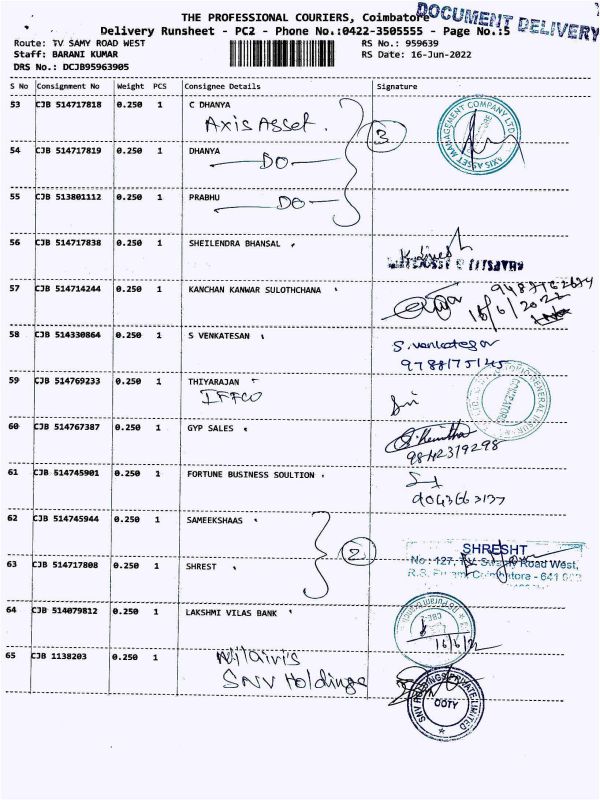 THE PROFESSIONAL COURIERS, Coimbatore
DOCUMENT DELIVERY
Delivery Runsheet - PC2 - Phone No.:0422-3505555 - Page No.:5
Route: TV SAMY ROAD WEST
RS No.: 959639
Staff: BARANI KUMAR
RS Date: 16-Jun-2022
DRS No.: DCJB95963905
S No Consignment No Weight PCS Consignee Details Signature
53 CJB 514717818 0.250 1 C DHANYA
Axis Asset.
3
AXIS ASSET MANAGEMENT COMPANY LTD
54 CJB 514717819 0.250 1 DHANYA
DO
55 CJB 513801112 0.250 1 PRABHU
DO
56 CJB 514717838 0.250 1 SHEILENDRA BHANSAL
57 CJB 514714244 0.250 1 KANCHAN KANWAR SULOTHCHANA
16/6/2022
58 CJB 514330864 0.250 1 S VENKATESAN
S. venkatesan
9788175145
59 CJB 514769233 0.250 1 THIYARAJAN
IFFCO
60 CJB 514767387 0.250 1 GYP SALES
9842319298
61 CJB 514745901 0.250 1 FORTUNE BUSINESS SOULTION
9043663137
62 CJB 514745944 0.250 1 SAMEEKSHAAS
2
SHRESHT
No : 127, T.V. Swamy Road West,
R.S. Puram, Coimbatore - 641 002
63 CJB 514717808 0.250 1 SHREST
64 CJB 514079812 0.250 1 LAKSHMI VILAS BANK
16/6/22
65 CJB 1138203 0.250 1
SNV Holdings
SNV HOLDINGS PRIVATE LIMITED
OOTY